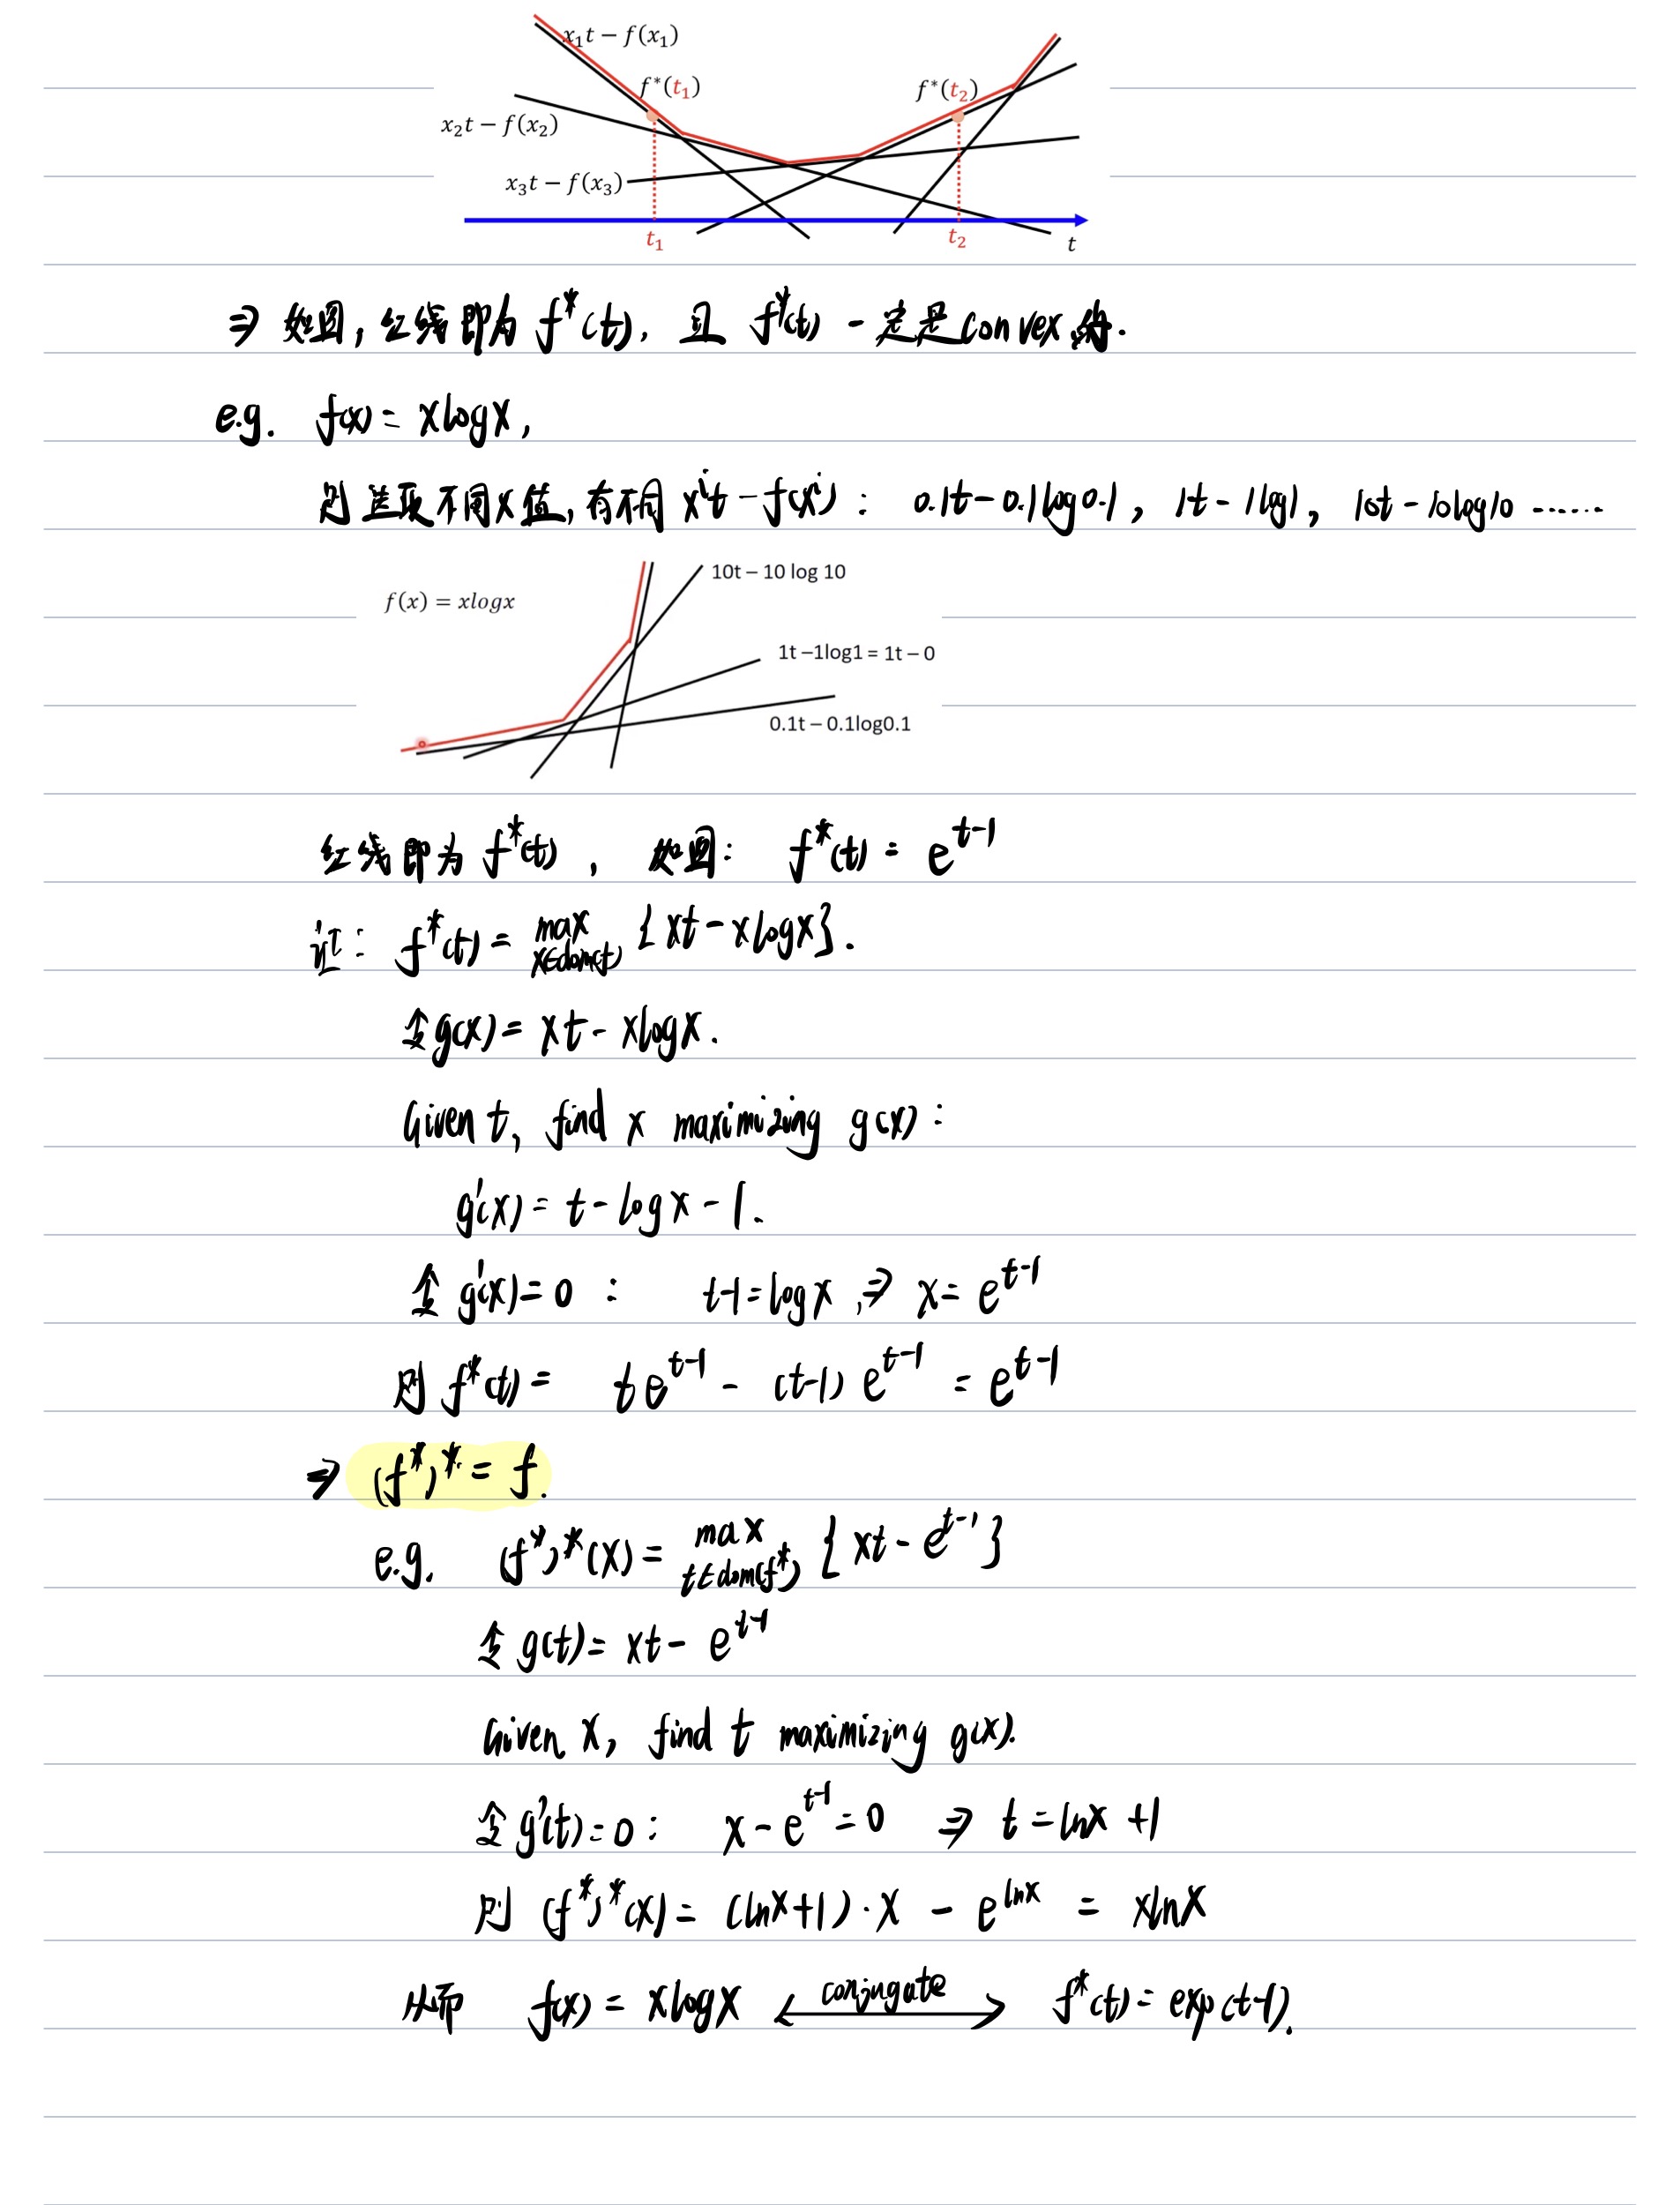 x₁t − f(x₁)
f*(t₁)
f*(t₂)
x₂t − f(x₂)
x₃t − f(x₃)
t₁
t₂
t
⇒ 如图, 红线即为 f*(t), 且 f*(t) 一定是convex的.
e.g. f(x) = xlogx,
则选取不同x值, 有不同 xⁱt − f(xⁱ) : 0.1t − 0.1log0.1, 1t − 1log1, 10t − 10log10 ······
10t − 10 log 10
f(x) = xlogx
1t −1log1 = 1t − 0
0.1t − 0.1log0.1
红线即为 f*(t), 如图: f*(t) = e^{t-1}
证: f*(t) = max_{x∈dom(f)} {xt − xlogx}.
令g(x) = xt − xlogx.
Given t, find x maximizing g(x) :
g'(x) = t − logx − 1.
令 g'(x) = 0 : t-1 = logx, ⇒ x = e^{t-1}
则 f*(t) = te^{t-1} − (t-1) e^{t-1} = e^{t-1}
⇒ (f*)* = f.
e.g. (f*)*(x) = max_{t∈dom(f*)} {xt − e^{t-1}}
令 g(t) = xt − e^{t-1}
Given x, find t maximizing g(x).
令 g'(t) = 0 : x − e^{t-1} = 0 ⇒ t = lnx + 1
则 (f*)*(x) = (lnx+1)·x − e^{lnx} = xlnx
从而 f(x) = xlogx ⟷ conjugate f*(t) = exp(t-1).